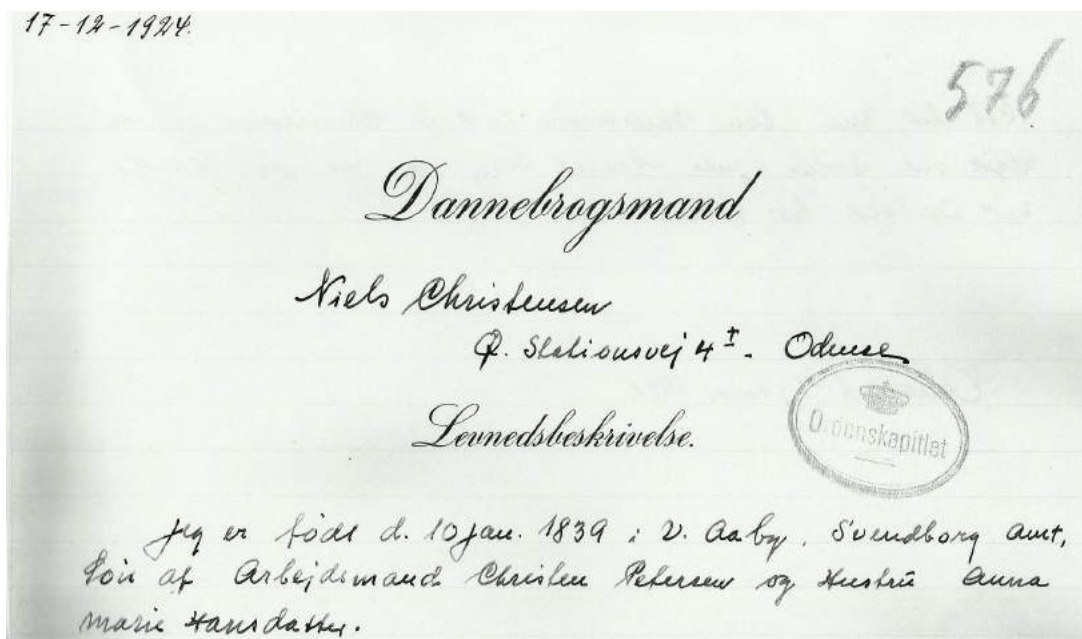 17-12-1924.
576
Dannebrogsmand
Niels Christensen
Ø. Stationsvej 4 I. Odense
Levnedsbeskrivelse.
Ordenskapitlet
Jeg er født d. 10 Jan. 1839 i V. Aaby, Svendborg Amt,
Søn af Arbejdsmand Christen Petersen og Hustru Anna
Marie Hansdatter.